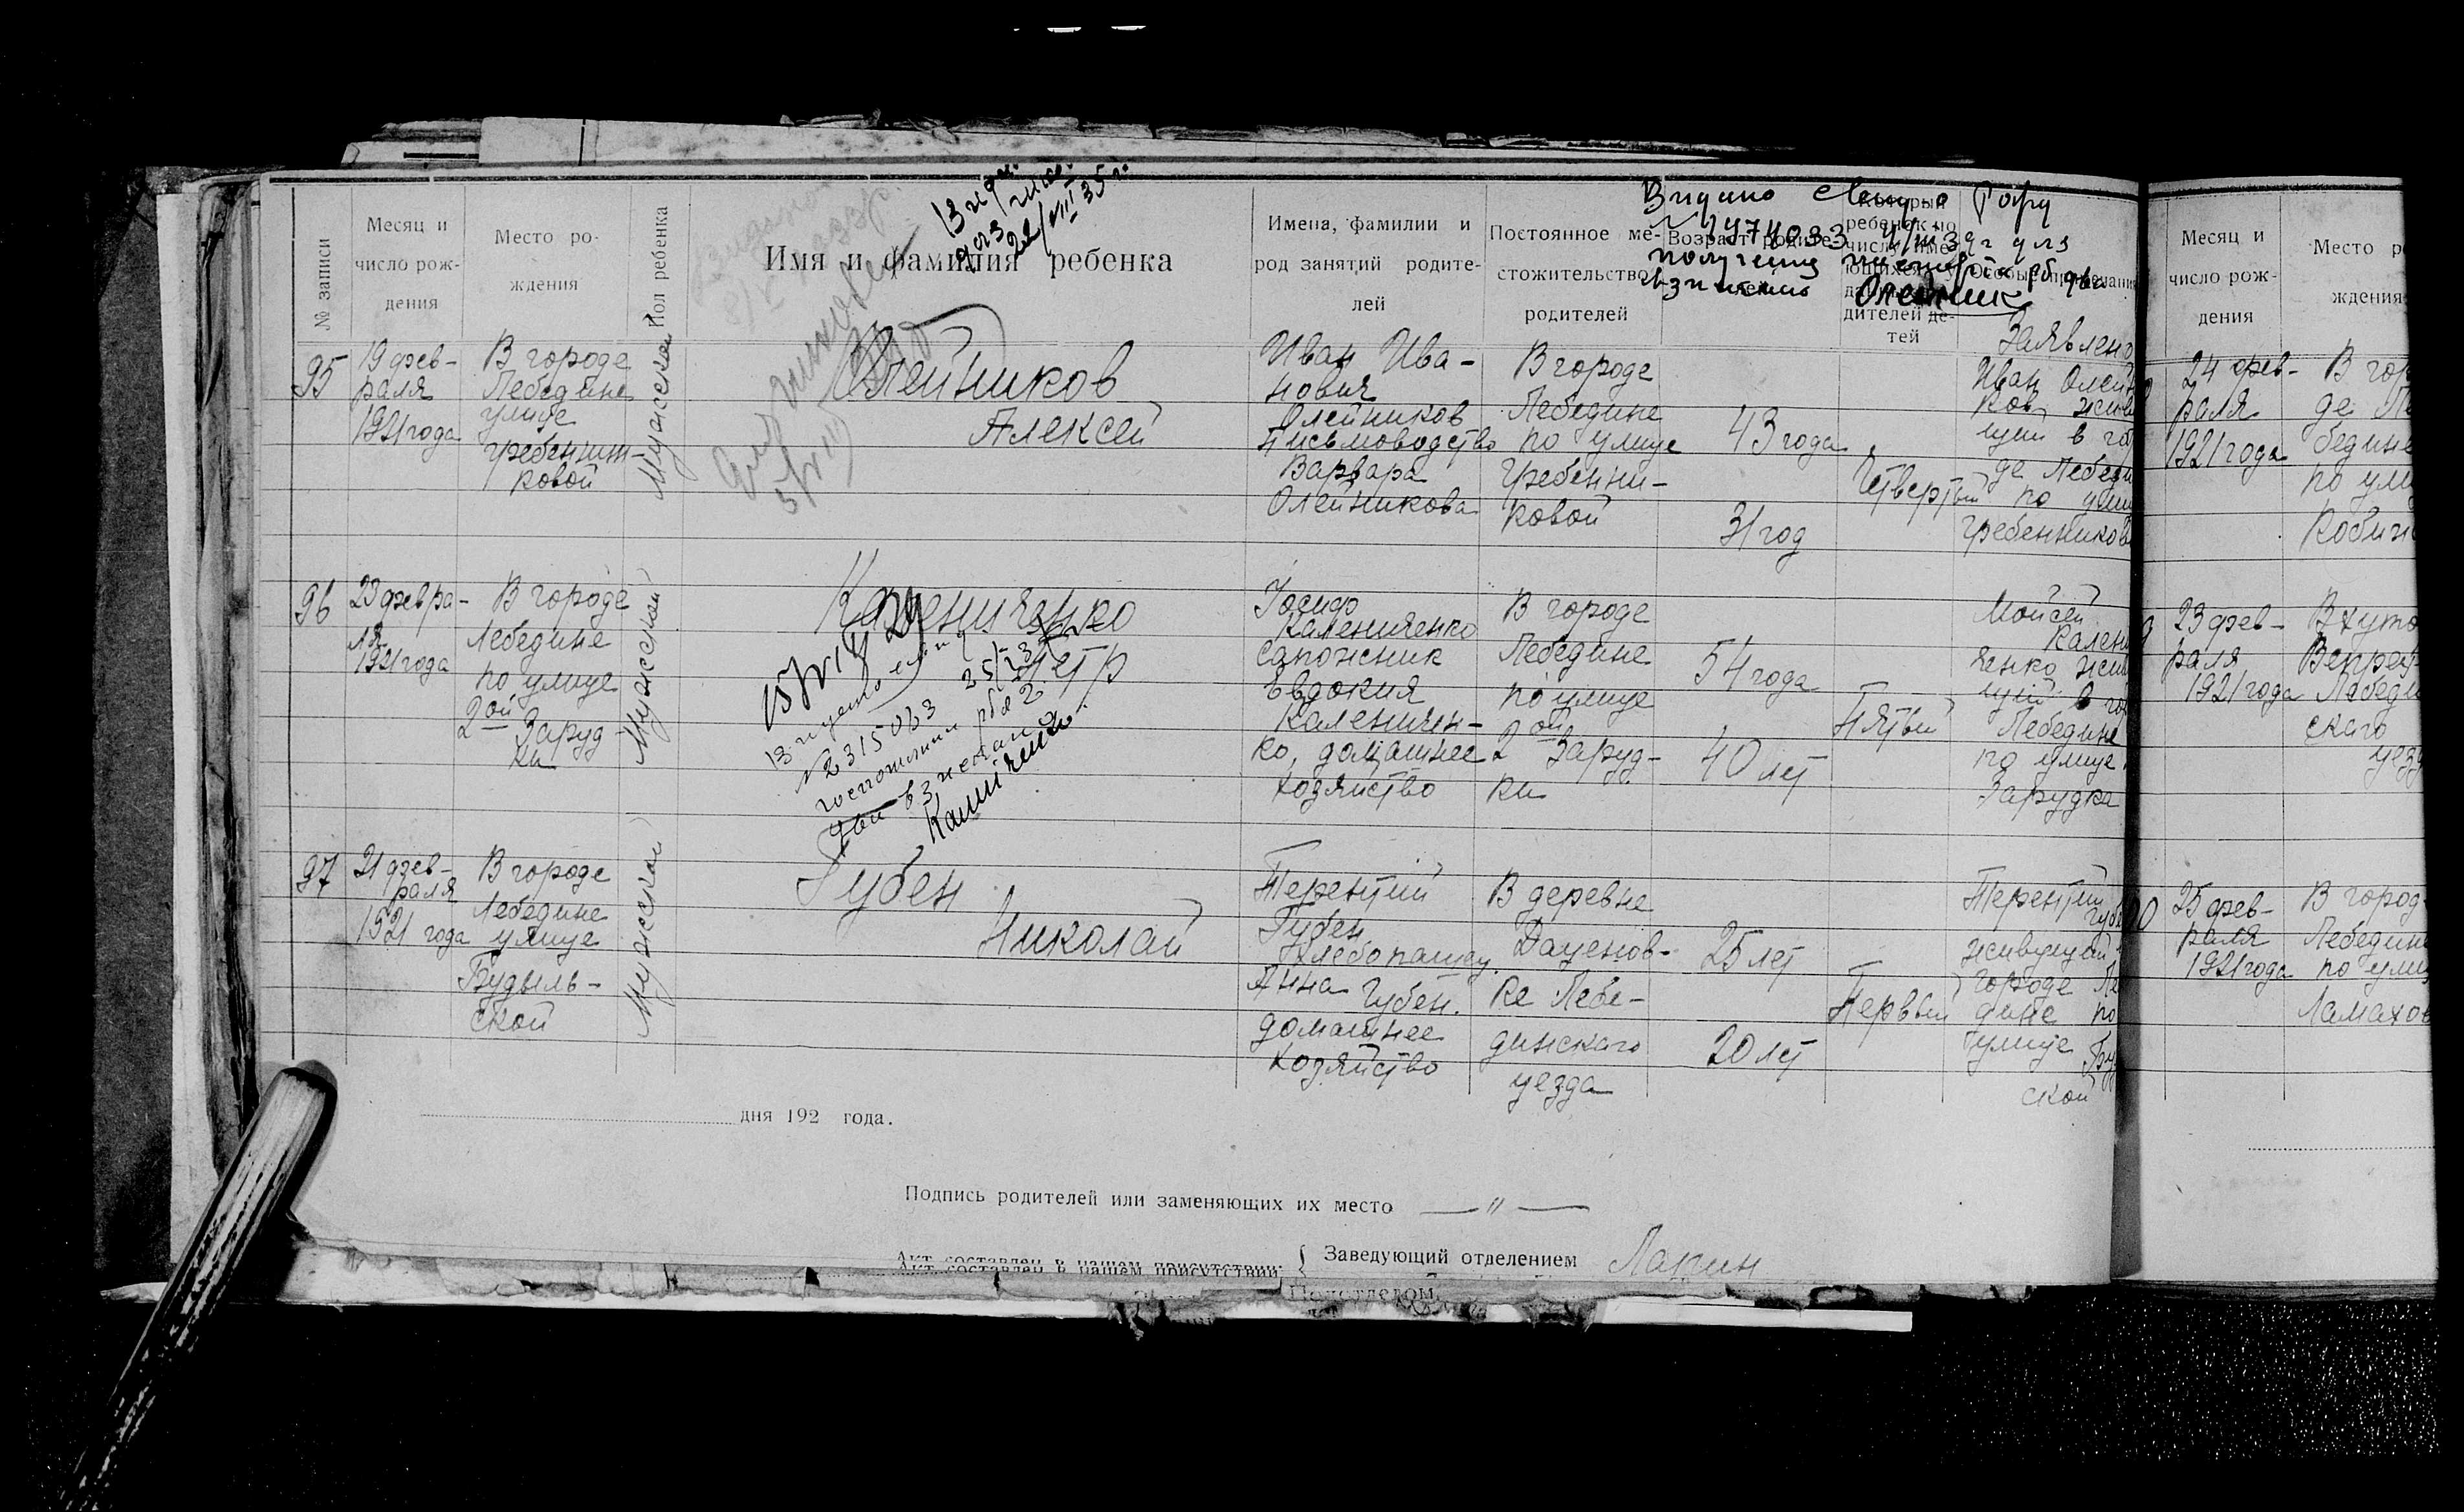 № записи
Месяц и
число рож-
дения
Место ро-
ждения
Пол ребенка
Имя и фамилия ребенка
Имена, фамилии и
род занятий родите-
лей
Постоянное ме-
стожительство
родителей
дителей де-
тей
Олейник
95
19 фев-
раля
1921 года
В городе
Лебедине
улице
Гребенни-
ковой
Мужеской
Олейников
Алексей
Иван Ива-
нович
Олейников
письмоводство
Варвара
Олейникова
В городе
Лебедине
по улице
Гребенни-
ковой
43 года
31 год
Четвертый
Заявлено
Иван Олейни
ков, живу
щий в горо
де Лебеди
по улице
Гребенников
96
23 февра-
ля
1921 года
В городе
Лебедине
по улице
2ой Заруд-
ки
Мужеской
Каленченко
Петр
N 2315033
Иосиф
Калениченко
сапожник
Евдокия
Каленичен-
ко, домашнее
хозяйство
В городе
Лебедине
по улице
2ой Заруд-
ки
54 года
40 лет
Пятый
Мойсей
Калени
ченко живу
щий в го
Лебедине
по улице
Зарудка
97
21 фев-
раля
1921 года
В городе
Лебедине
улице
Будыль-
ской
Мужеской
Губен
Николай
Терентий
Губен
хлебопашец
Анна Губен.
домашнее
хозяйство
В деревне
Даценов-
ке Лебе-
динскаго
уезда
25 лет
20 лет
Первый
Терентий
Губе
живущий
городе Ле
дине по
улице Буд
ской
дня 192 года.
Подпись родителей или заменяющих их место — " —
Акт составлен в нашем присутствии:
Заведующий отделением
Подотделом
Месяц и
число рож-
дения
Место ро
ждения
24 фев-
раля
1921 года
В горо
де Ле
бедине
по ули
23 фев-
раля
1921 года
В хуто
Лебеди
скаго
уезд
25 фев-
раля
1921 года
В город
Лебедин
по ули
Ламахов